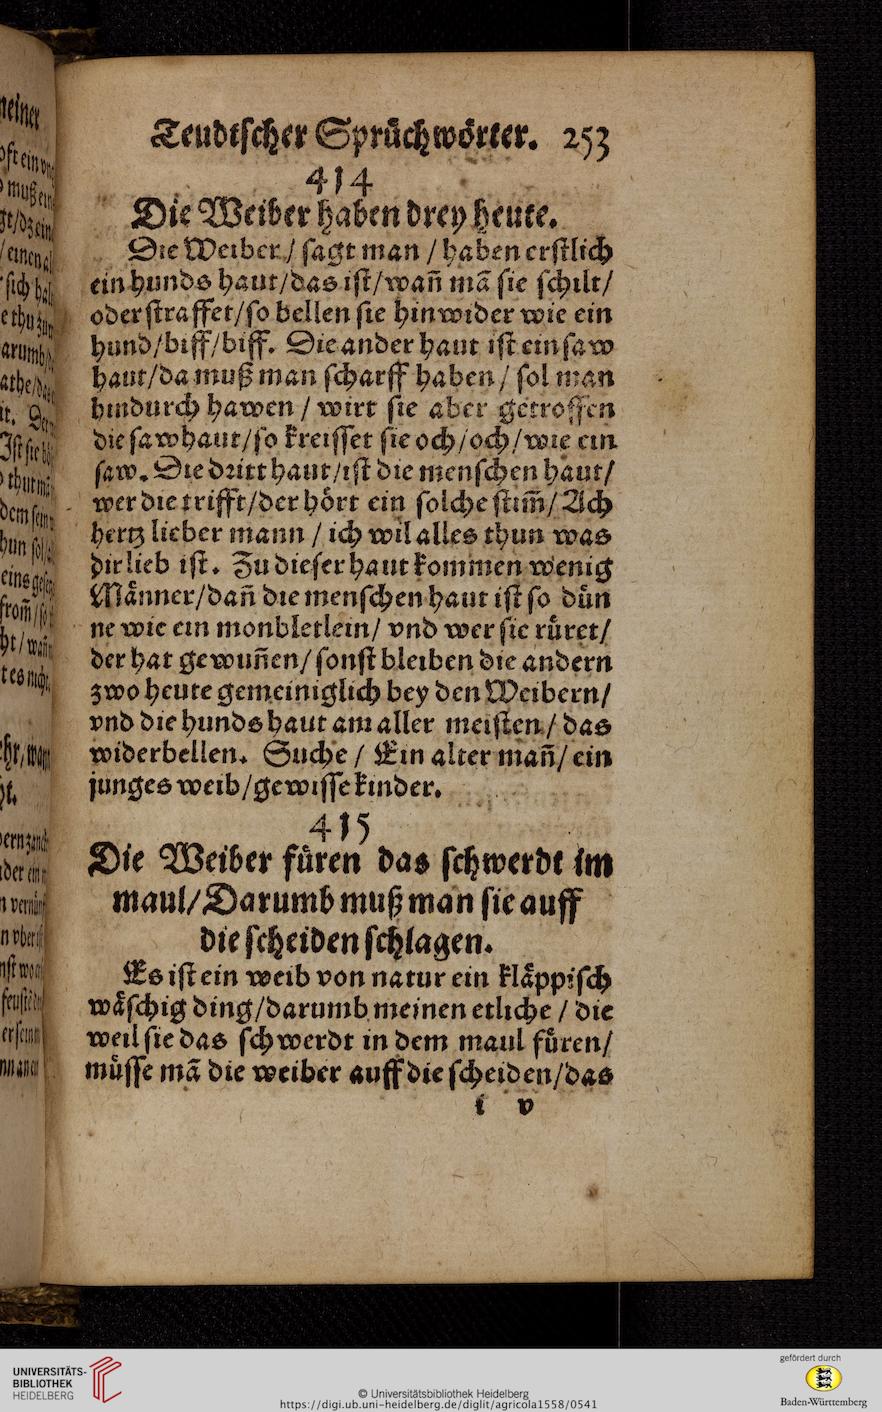 Teudtscher Sprüchwörter. 253
414
Die Weiber haben drey heute.
Die Weiber / sagt man / haben erstlich
ein hunds haut/das ist/wañ mã sie schilt/
oder straffet/so bellen sie hinwider wie ein
hund/biff/biff. Die ander haut ist ein saw
haut/da muß man scharff haben / sol man
hindurch hawen / wirt sie aber getroffen
die sawhaut/so kreisset sie och/och/wie ein
saw. Die dritt haut/ist die menschen haut/
wer die trifft/der hört ein solche stim̃/ Ach
hertz lieber mann / ich wil alles thun was
dir lieb ist. Zu dieser haut kommen wenig
Männer/dañ die menschen haut ist so dün
ne wie ein monbletlein/ vnd wer sie rüret/
der hat gewuñen/ sonst bleiben die andern
zwo heute gemeiniglich bey den Weibern/
vnd die hunds haut am aller meisten/ das
widerbellen. Suche / Ein alter mañ/ ein
junges weib/gewisse kinder.
415
Die Weiber füren das schwerdt im
maul/Darumb muß man sie auff
die scheiden schlagen.
Es ist ein weib von natur ein kläppisch
wäschig ding/darumb meinen etliche / die
weil sie das schwerdt in dem maul füren/
müsse mã die weiber auff die scheiden/das
i v
UNIVERSITÄTS-
BIBLIOTHEK
HEIDELBERG
© Universitätsbibliothek Heidelberg
https://digi.ub.uni-heidelberg.de/diglit/agricola1558/0541
gefördert durch
Baden-Württemberg